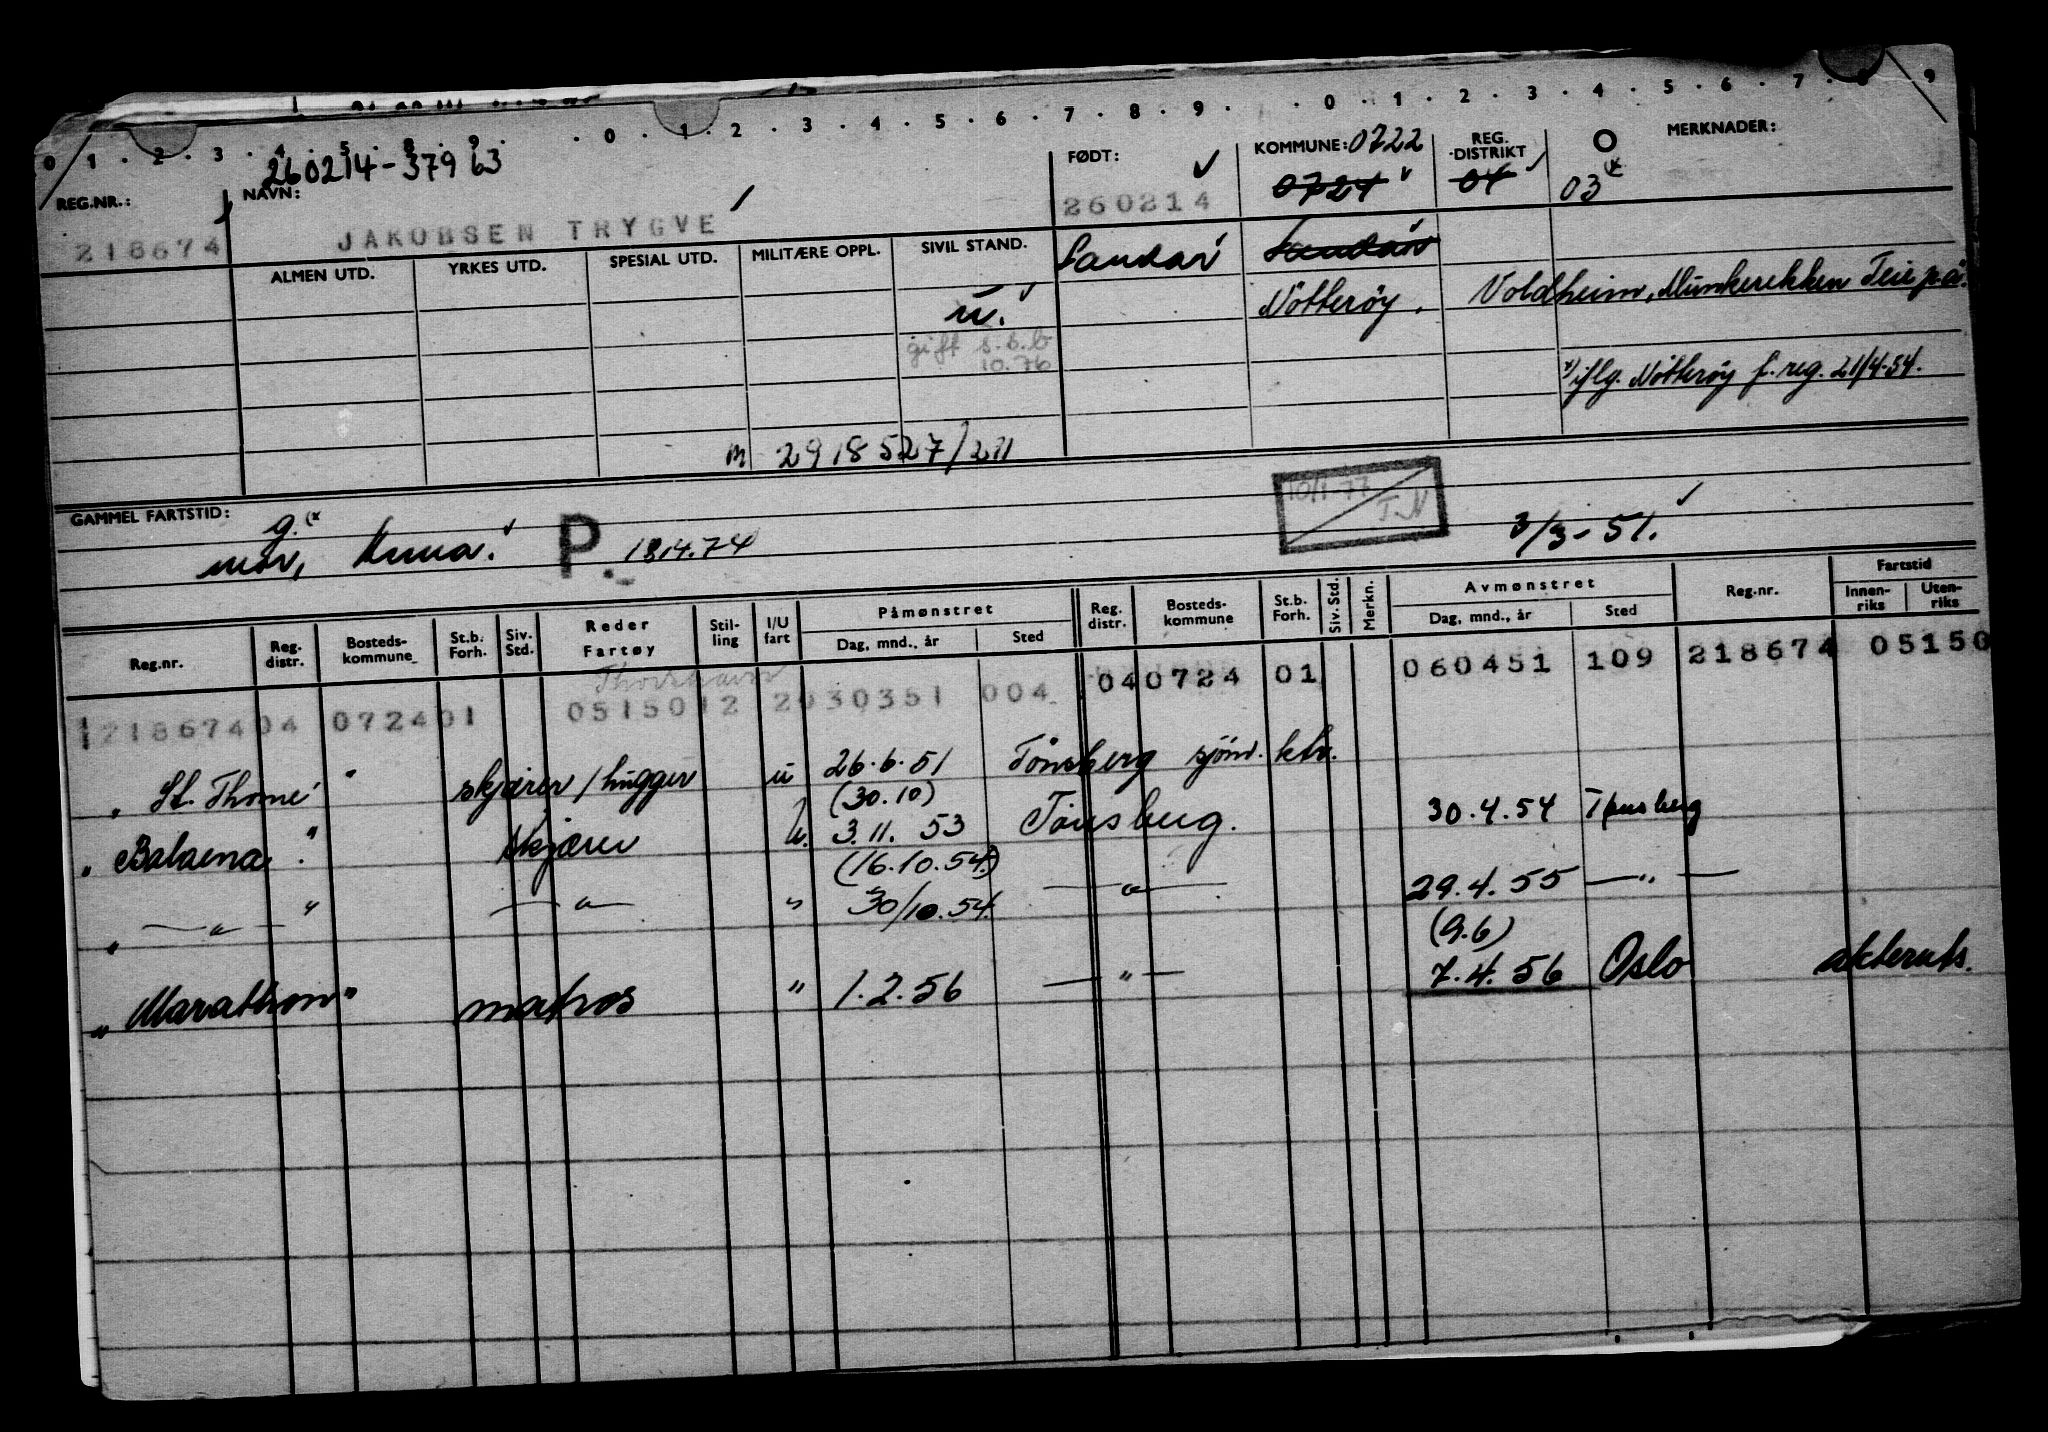 0 1 . 2 . 3 . 4 . 5 . 8 . 9 . . 0 . 1 . 2 . 3 . 4 . 5 . 6 . 7 . 8 . 9 . . 0 . 1 . 2 . 3 . 4 . 5 . 6 . 7 . 8 . 9
260214-37963
REG.NR.: NAVN: FØDT: KOMMUNE: 0722 REG. DISTRIKT MERKNADER:
218674 JAKOBSEN TRYGVE 260214 0724 04 03
ALMEN UTD. YRKES UTD. SPESIAL UTD. MILITÆRE OPPL. SIVIL STAND. Sandar Sandar
u. Nötterøy. Voldheim, Munkerekken Teie p.å.
gift s.b.b
10.76
x) iflg. Nötterøy f.reg. 21/4-54.
m 2918527/211
GAMMEL FARTSTID: g. (x
mor, Anna. P. 1814.74 10/1-77 T.N 3/3-51.
Reg.nr. Reg. distr. Bosteds- kommune St.b. Forh. Siv. Std. Reder Fartøy Stil- ling I/U fart Påmønstret Dag, mnd., år Sted Reg. distr. Bosteds- kommune St.b. Forh. Siv. Std. Merkn. Avmønstret Dag, mnd., år Sted Reg.nr. Fartstid Innen- riks Uten- riks
Thorshavn
218674 04 0724 01 05150 12 2 030351 004 04 0724 01 060451 109 218674 05150
" St. Thomé " skjærer/hugger u 26.6.51 Tönsberg sjöm. ktr.
(30.10)
" Balaena " skjærer u. 3.11.53 Tönsberg. 30.4.54 Tønsberg
(16.10.54.)
" — " — " — " — " 30/10.54. — " — 29.4.55 — " —
(9.6)
" Marathon " matros " 1.2.56 — " — 7.4.56 Oslo akteruts.